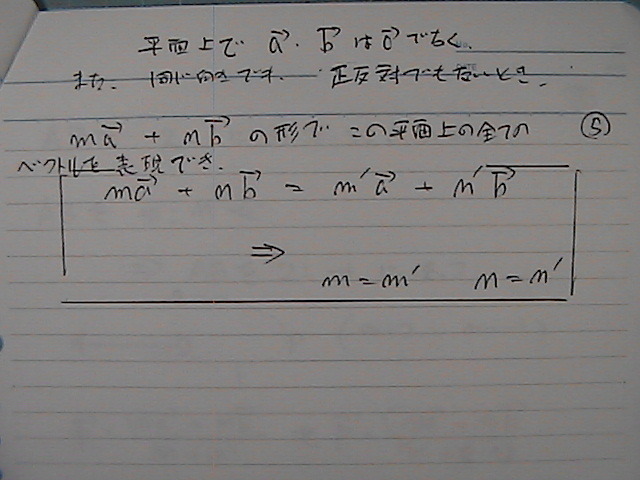 平面上で a⃗・b⃗ は 0⃗ でなく、
また、同じ向きでも、正反対でもないとき、
ma⃗ + nb⃗ の形で この平面上の全ての ⑤
ベクトルを表現でき、
ma⃗ + nb⃗ = m′a⃗ + n′b⃗
⇒
m = m′ n = n′